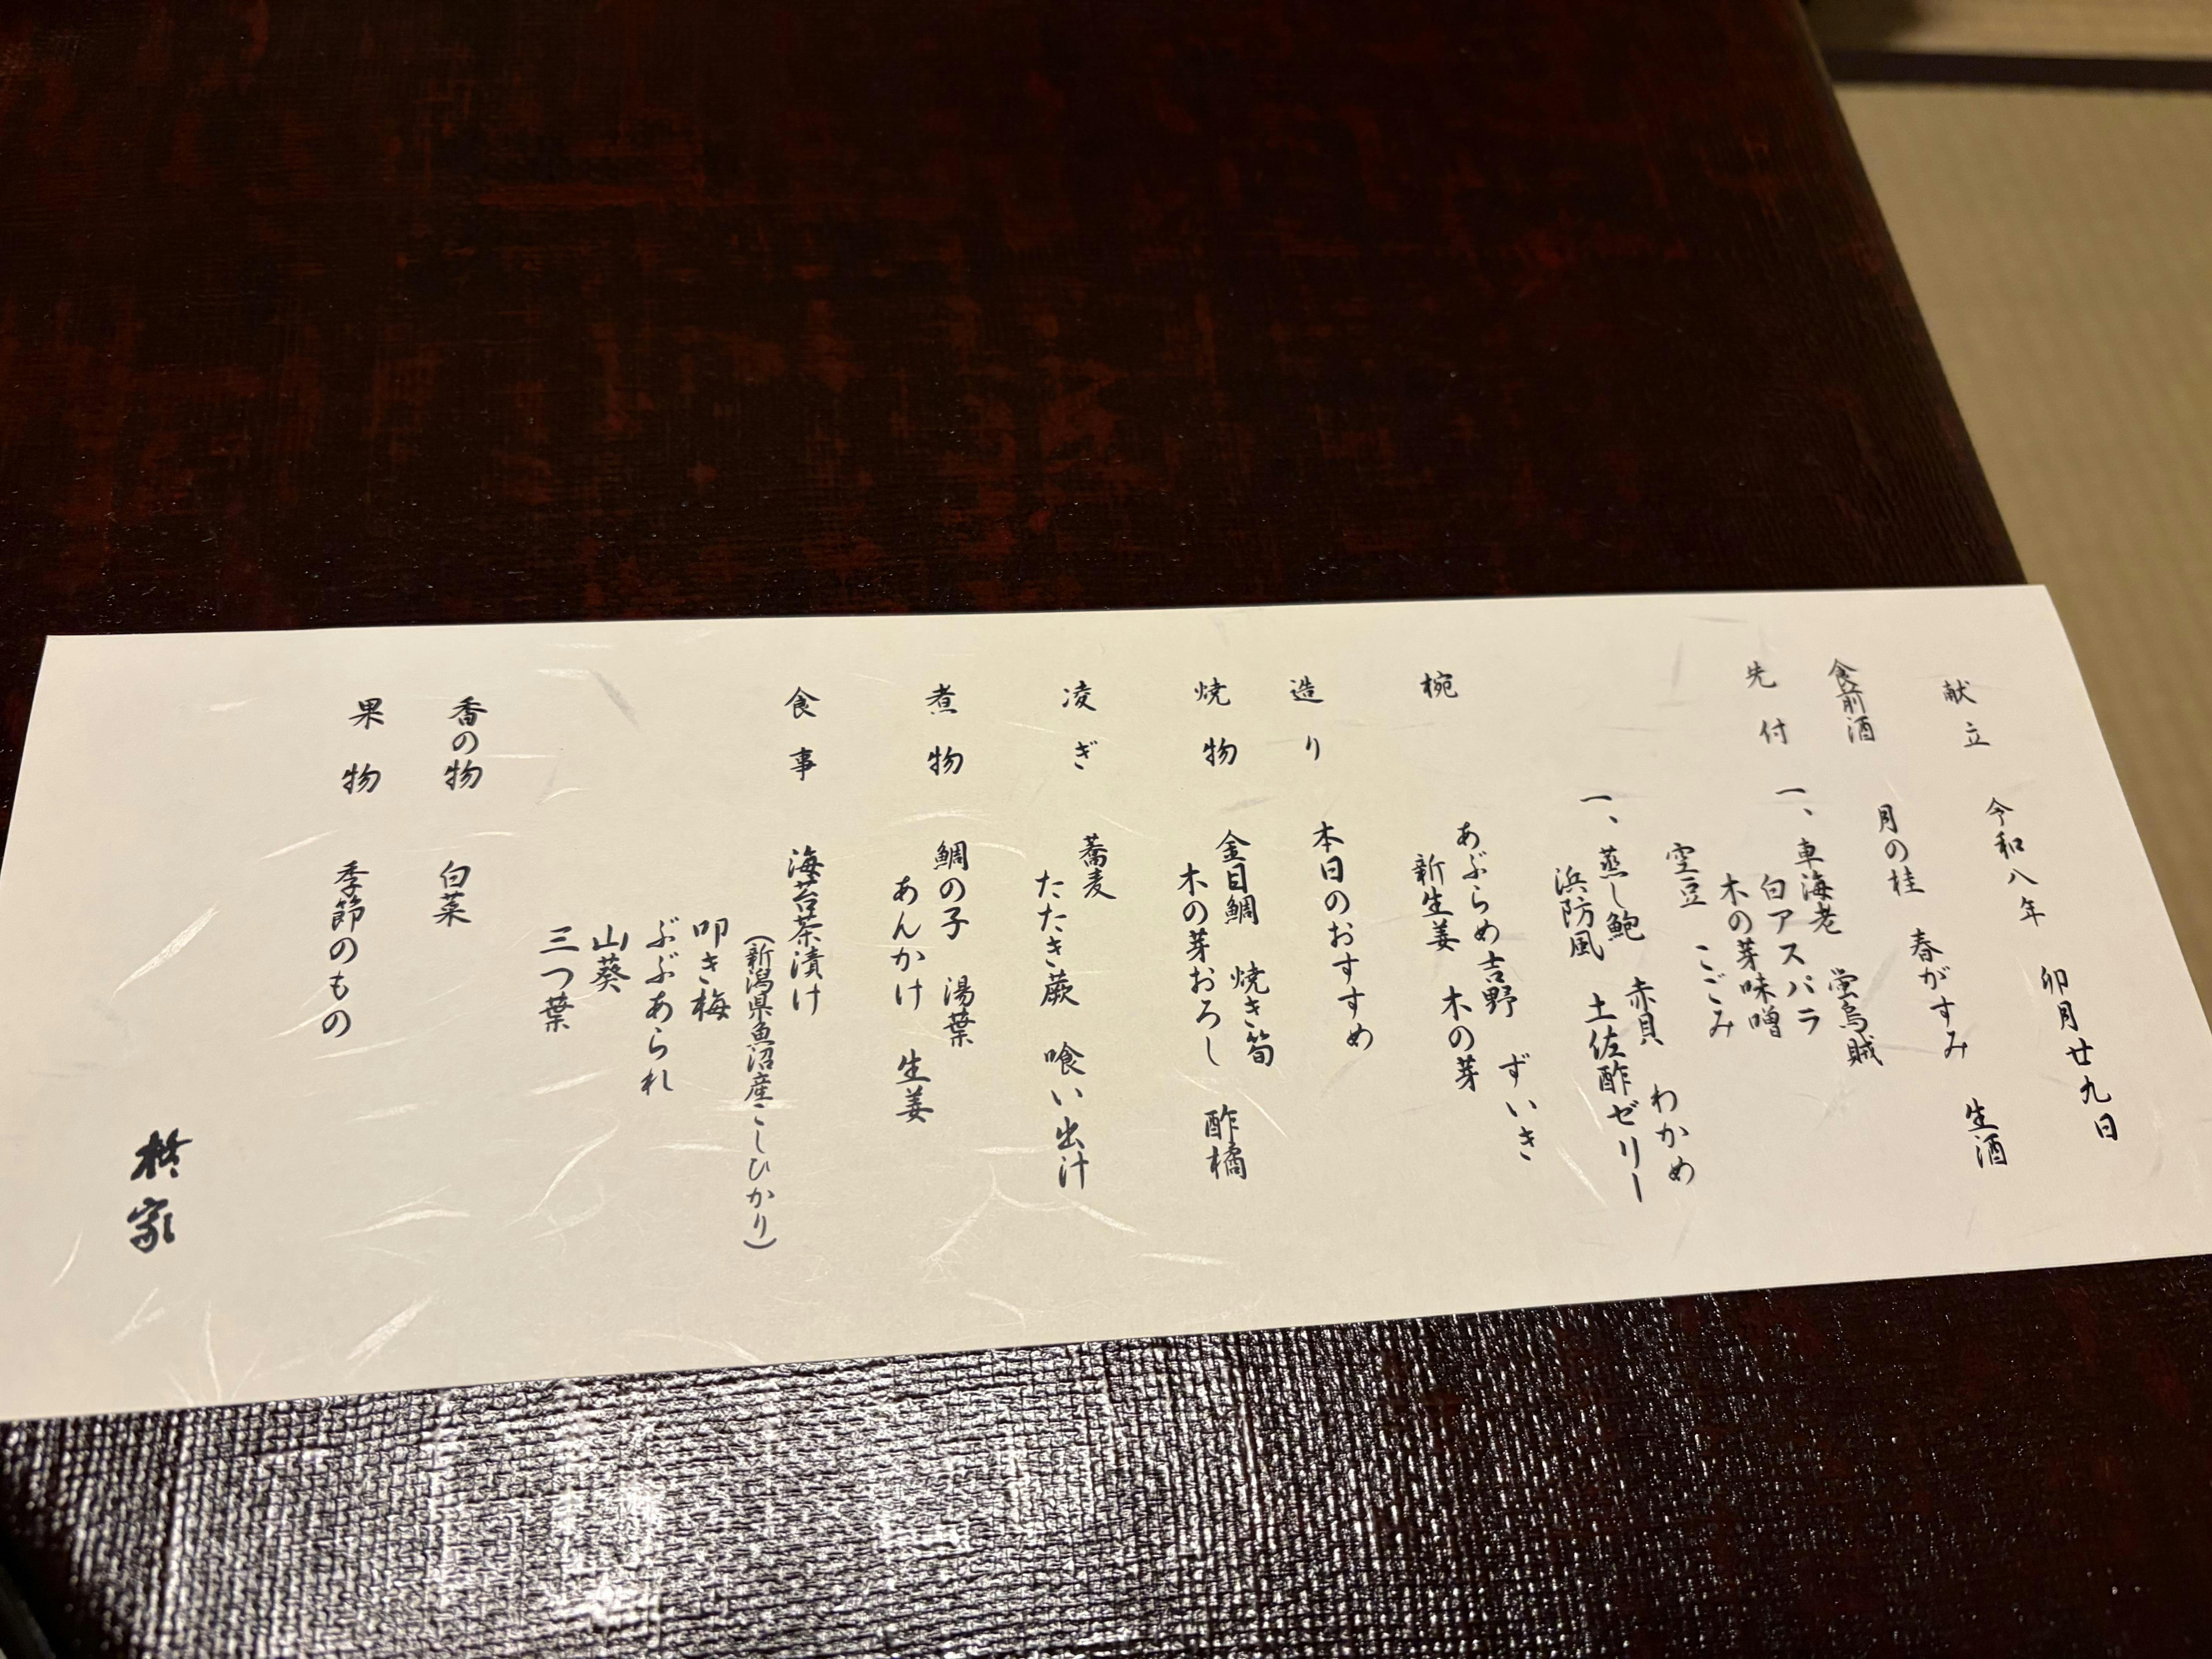 献立　令和八年　卯月廿九日
食前酒　月の桂　春がすみ　生酒
先付　一、車海老　蛍烏賊
白アスパラ
木の芽味噌
空豆　こごみ
一、蒸し鮑　赤貝　わかめ
浜防風　土佐酢ゼリー
椀　あぶらめ吉野　ずいき
新生姜　木の芽
造り　本日のおすすめ
焼物　金目鯛　焼き筍
木の芽おろし　酢橘
凌ぎ　蕎麦
たたき蕨　喰い出汁
煮物　鯛の子　湯葉
あんかけ　生姜
食事　海苔茶漬け
（新潟県魚沼産こしひかり）
叩き梅
ぶぶあられ
山葵
三つ葉
香の物　白菜
果物　季節のもの
柊家